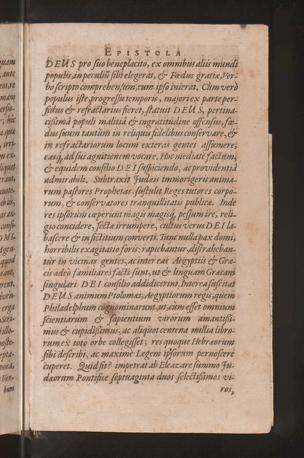 EPISTOLA
DEUS pro suo beneplacito, ex omnibus aliis mundi
populis, in peculium sibi elegerat, & Fœdus gratiæ, Ver-
bo scripto comprehensum, cum ipso inierat. Cum verò
populus iste, progressu temporis, major ex parte per-
fidus & refractarius fieret, statuit DEUS, pertina-
cissimâ populi malitiâ & ingratitudine offensus, fœ-
dus suum tantùm in reliquis fidelibus conservare, &
in refractariorum locum exteras gentes assumere,
easq; ad sui agnitionem vocare. Hoc mediatè factum,
& equidem consilio DEI sic disponendo, ac providentiâ
admirabili. Subtraxit Judæis immorigeris anima-
rum pastores Prophetas: sustulit Reges tutores corpo-
rum, & conservatores tranquillitatis publicæ. Inde
res ipsorum cœperunt magis magisq; pessum ire, reli-
gio concidere, secta irrumpere, cultus verus DEI la-
bascere & in fictitium converti. Tunc nulla pax domi,
horribilis exagitatio foris; rapiebantur, distrahebant-
tur in vicinas gentes, ac inter eas Ægyptiis & Græ-
cis adeò familiares facti sunt, ut & linguam Græcam
singulari DEI consilio addidicerint. Interea suscitat
DEUS animum Ptolomæi, Ægyptiorum regis, quem
Philadelphum cognominarunt, ut, cùm esset omnium
scientiarum & sapientum virorum amantissi-
mus & cupidissimus, ac aliquot centena millia libro-
rum ex toto orbe collegisset; res quoque Hebræorum
sibi describi, ac maximè Legem ipsorum pernoscere
cuperet. Quid fit? impetrat ab Eleazare summo Ju-
dæorum Pontifice septuaginta duos selectissimos vi-
ros,